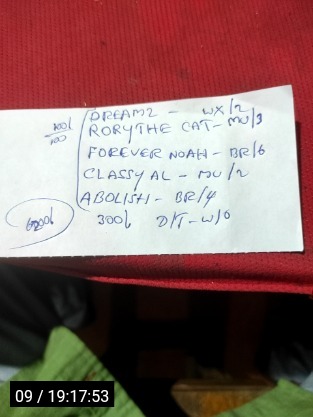 DREAMZ - WX/2
100/
100
RORYTHE CAT - MU/3
FOREVER NOAH - BR/6
CLASSY AL - MU/2
ABOLISH - BR/4
300/ D/T - W/O
09 / 19:17:53